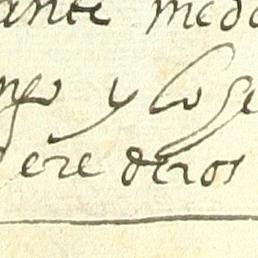 ante medo
ngo y lo se
ere deros